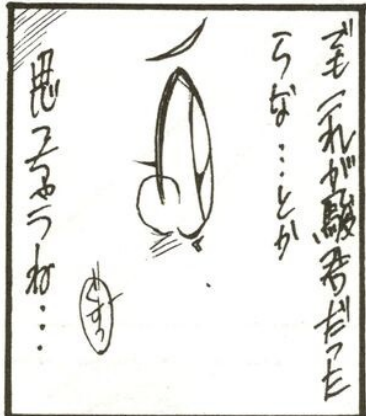 でもこれが駿君だった
らな…とか
思っちゃうね…
くすっ